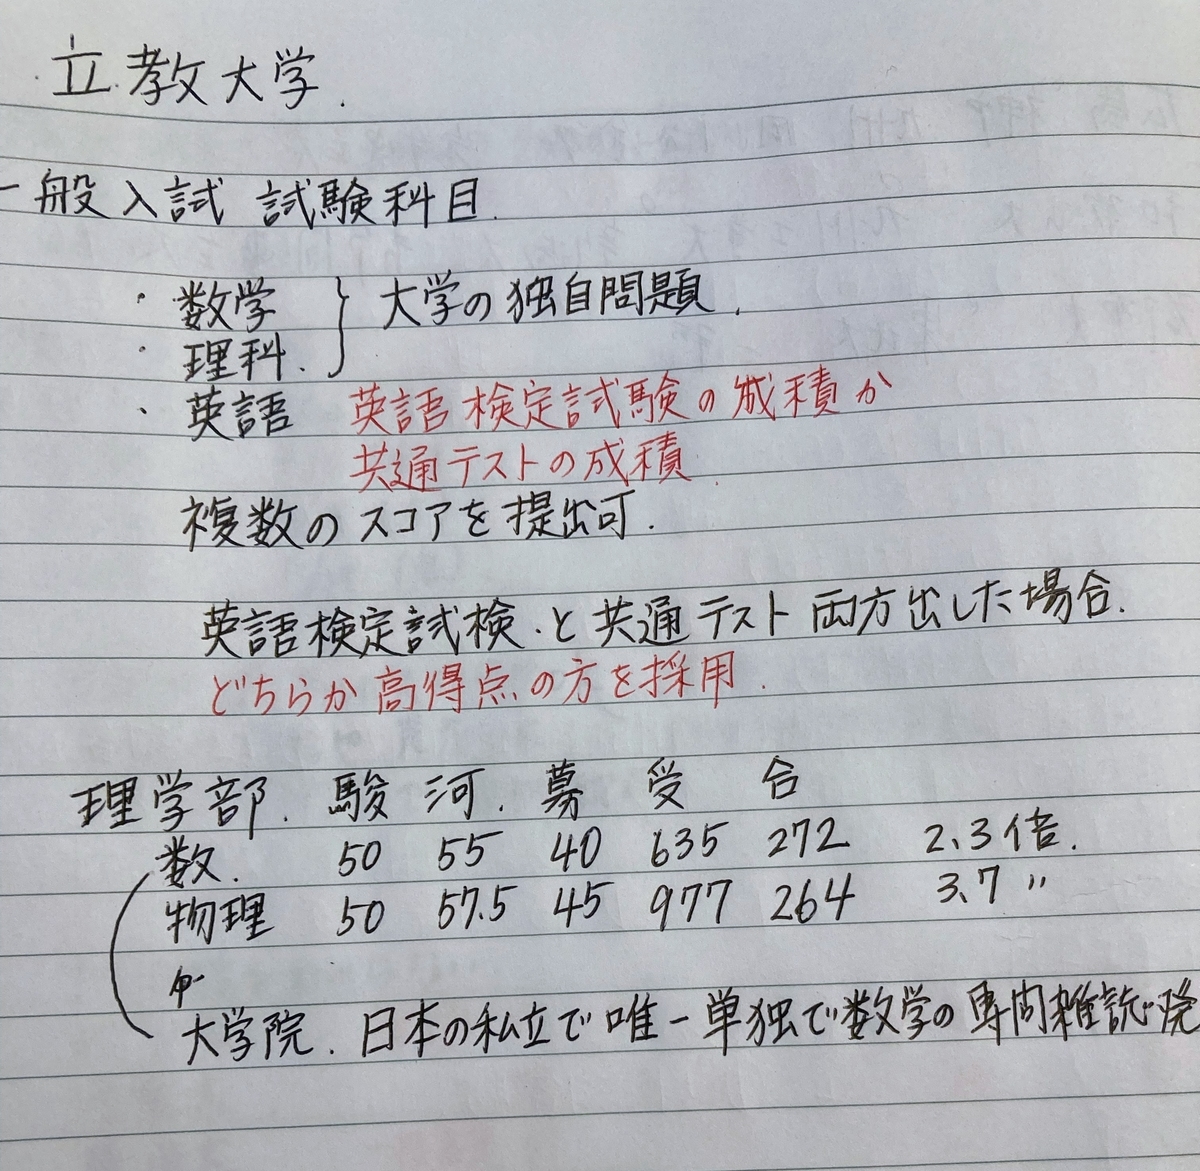 立教大学.
一般入試 試験科目.
・数学 } 大学の独自問題.
・理科.
・英語 英語検定試験の成積か
共通テストの成積.
複数のスコアを提出可.
英語検定試検.と共通テスト両方出した場合.
どちらか高得点の方を採用.
理学部. 駿 河. 募 受 合
数. 50 55 40 635 272 2.3倍.
物理 50 57.5 45 977 264 3.7 〃
大学院. 日本の私立で唯一単独で数学の専門雑誌発